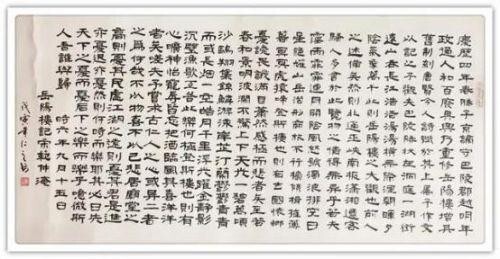 慶歷四年春滕子京謫守巴陵郡越明年
政通人和百廢具興乃重修岳陽樓增其
舊制刻唐賢今人詩賦於其上屬予作文
以記之予觀夫巴陵勝狀在洞庭一湖銜
遠山吞長江浩浩湯湯橫無際涯朝暉夕
陰氣象萬千此則岳陽樓之大觀也前人
之述備矣然則北通巫峽南極瀟湘遷客
騷人多會於此覽物之情得無異乎若夫
霪雨霏霏連月不開陰風怒號濁浪排空日
星隱曜山岳潛形商旅不行檣傾楫摧薄
暮冥冥虎嘯猿啼登斯樓也則有去國懷鄉
憂讒畏譏滿目蕭然感極而悲者矣至若
春和景明波瀾不驚上下天光一碧萬頃
沙鷗翔集錦鱗游泳岸芷汀蘭郁郁青青
而或長煙一空皓月千里浮光躍金靜影
沉璧漁歌互答此樂何極登斯樓也則有
心曠神怡寵辱皆忘把酒臨風其喜洋洋
者矣嗟夫予嘗求古仁人之心或異二者
之為何哉不以物喜不以己悲居廟堂之
高則憂其民處江湖之遠則憂其君是進
亦憂退亦憂然則何時而樂耶其必曰先
天下之憂而憂後天下之樂而樂乎噫微斯
人吾誰與歸 時六年九月十五日
岳陽樓記宋范仲淹